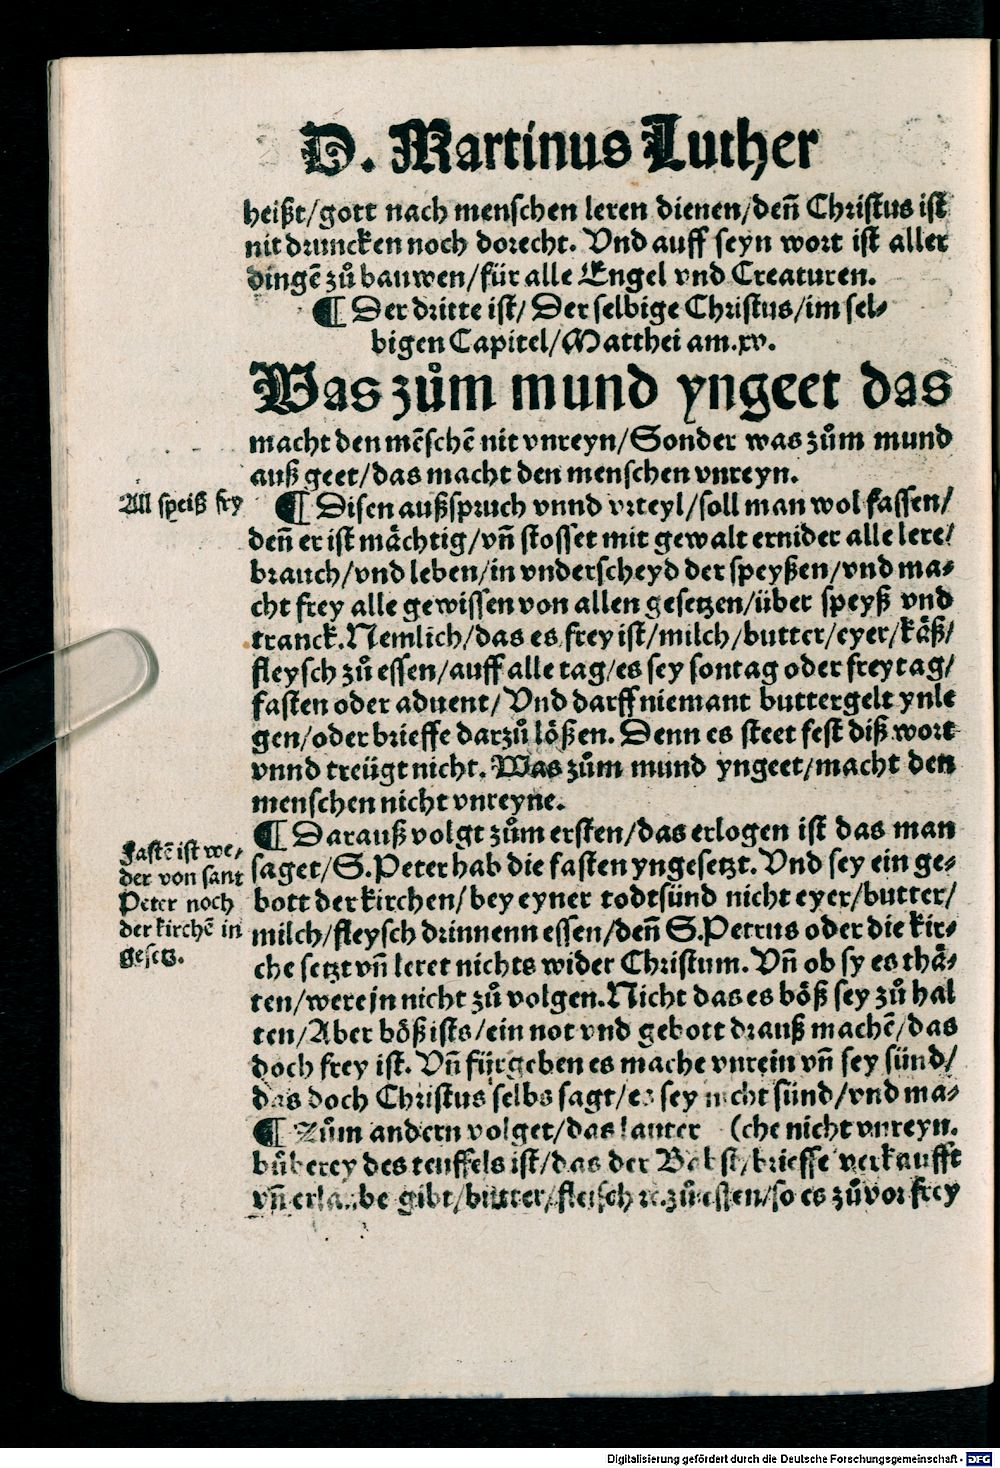 D. Martinus Luther
heißt/gott nach menschen leren dienen/deñ Christus ist
nit druncken noch dorecht. Vnd auff seyn wort ist aller
dingẽ zů bauwen/für alle Engel vnd Creaturen.
¶ Der dritte ist/ Der selbige Christus/im sel⸗
bigen Capitel/Matthei am.xv.
Was zům mund yngeet das
macht den mẽschẽ nit vnreyn/Sonder was zům mund
auß geet/das macht den menschen vnreyn.
All speiß fry
¶ Disen außspruch vnnd vrteyl/soll man wol fassen/
deñ er ist mächtig/vñ stosset mit gewalt ernider alle lere/
brauch/vnd leben/in vnderscheyd der speyßen/vnd ma⸗
cht frey alle gewissen von allen gesetzen/über speyß vnd
tranck. Nemlich/das es frey ist/milch/butter/eyer/käß/
fleysch zů essen/auff alle tag/es sey sontag oder freytag/
fasten oder aduent/ Vnd darff niemant buttergelt ynle
gen/oder brieffe darzů lößen. Denn es steet fest diß wort
vnnd treügt nicht. Was zům mund yngeet/macht den
menschen nicht vnreyne.
Fastẽ ist we⸗
der von sant
Peter noch
der kirchẽ in
gesetz.
¶ Darauß volgt zům ersten/das erlogen ist das man
saget/S. Peter hab die fasten yngesetzt. Vnd sey ein ge⸗
bott der kirchen/bey eyner todtsünd nicht eyer/butter/
milch/fleysch drinnenn essen/deñ S. Petrus oder die kir⸗
che setzt vñ leret nichts wider Christum. Vñ ob sy es thä⸗
ten/were jn nicht zů volgen. Nicht das es böß sey zů hal
ten/Aber böß ists/ein not vnd gebott drauß machẽ/das
doch frey ist. Vñ fürgeben es mache vnrein vñ sey sünd/
das doch Christus selbs sagt/es sey nicht sünd/vnd ma⸗
¶ Zům andern volget/das lauter (che nicht vnreyn.
bůberey des teuffels ist/das der Babst/brieffe verkaufft
vñ erlaube gibt/butter/fleisch ꝛc. zů essen/so es zůvor frey
Digitalisierung gefördert durch die Deutsche Forschungsgemeinschaft - DFG